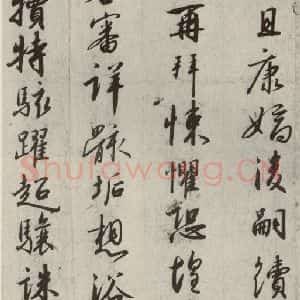 且康嫡後嗣續
再拜悚懼恐惶
審詳骸垢想浴
犢特駭躍超驤誅
Shufawang.CN